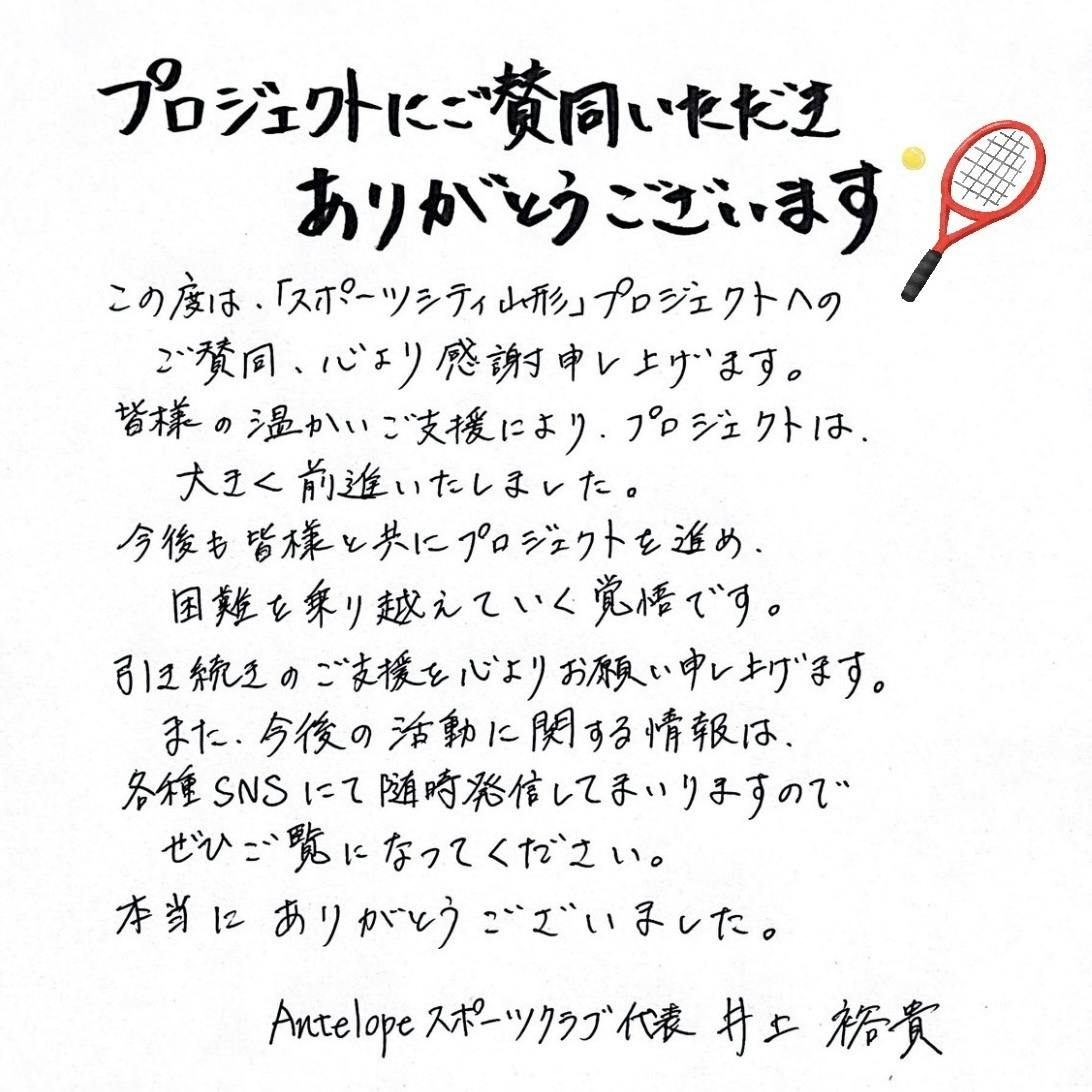 プロジェクトにご賛同いただき
ありがとうございます
この度は、「スポーツシティ山形」プロジェクトへの
ご賛同、心より感謝申し上げます。
皆様の温かいご支援により、プロジェクトは、
大きく前進いたしました。
今後も皆様と共にプロジェクトを進め、
困難を乗り越えていく覚悟です。
引き続きのご支援を心よりお願い申し上げます。
また、今後の活動に関する情報は、
各種SNSにて随時発信してまいりますので
ぜひご覧になってください。
本当にありがとうございました。
Antelopeスポーツクラブ代表 井上 裕貴